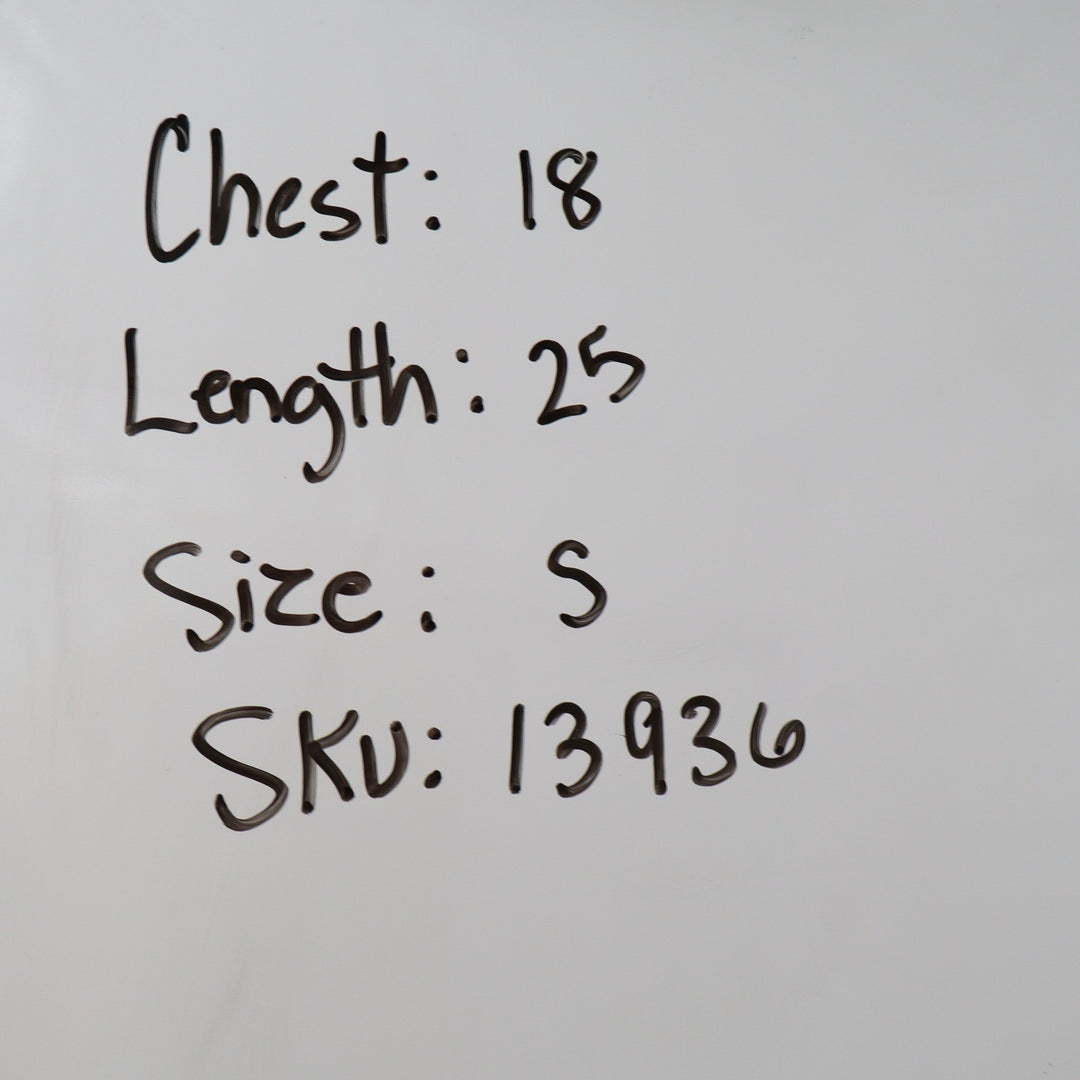 Chest: 18
Length: 25
Size: S
SKU: 13936